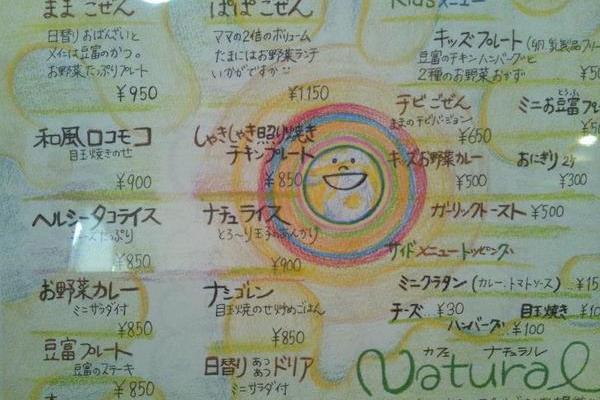 まま ごぜん
日替りおばんざいと
メインは豆富のかつ。
お野菜たっぷりプレート
¥950
和風ロコモコ
目玉焼きのせ
¥900
ヘルシータコライス
たっぷり
¥850
お野菜カレー
ミニサラダ付
¥850
豆富プレート
豆富のステーキ
¥850
ぱぱごぜん
ママの2倍のボリューム
たまにはお野菜ランチ
いかがですか
¥1150
しゃきしゃき照り焼き
チキンプレート
¥850
ナチュライス
とろ〜り玉子のあんかけ
¥900
ナシゴレン
目玉焼のせ炒めごはん
¥850
日替り あつあつ ドリア
ミニサラダ付
Kidsメニュー
キッズプレート (卵、乳製品フリー
豆富のチキンハンバーグと
2種のお野菜おかず
チビごぜん
ままのチビバージョン
¥650
ミニお豆富プレ
とうふ
キッズお野菜カレー
¥500
おにぎり 2ケ
¥300
ガーリックトースト ¥500
サイドメニュートッピング
ミニグラタン (カレー、トマトソース)
チーズ ¥30
目玉焼き
ハンバーグ ¥100
カフェ ナチュラル
Natural